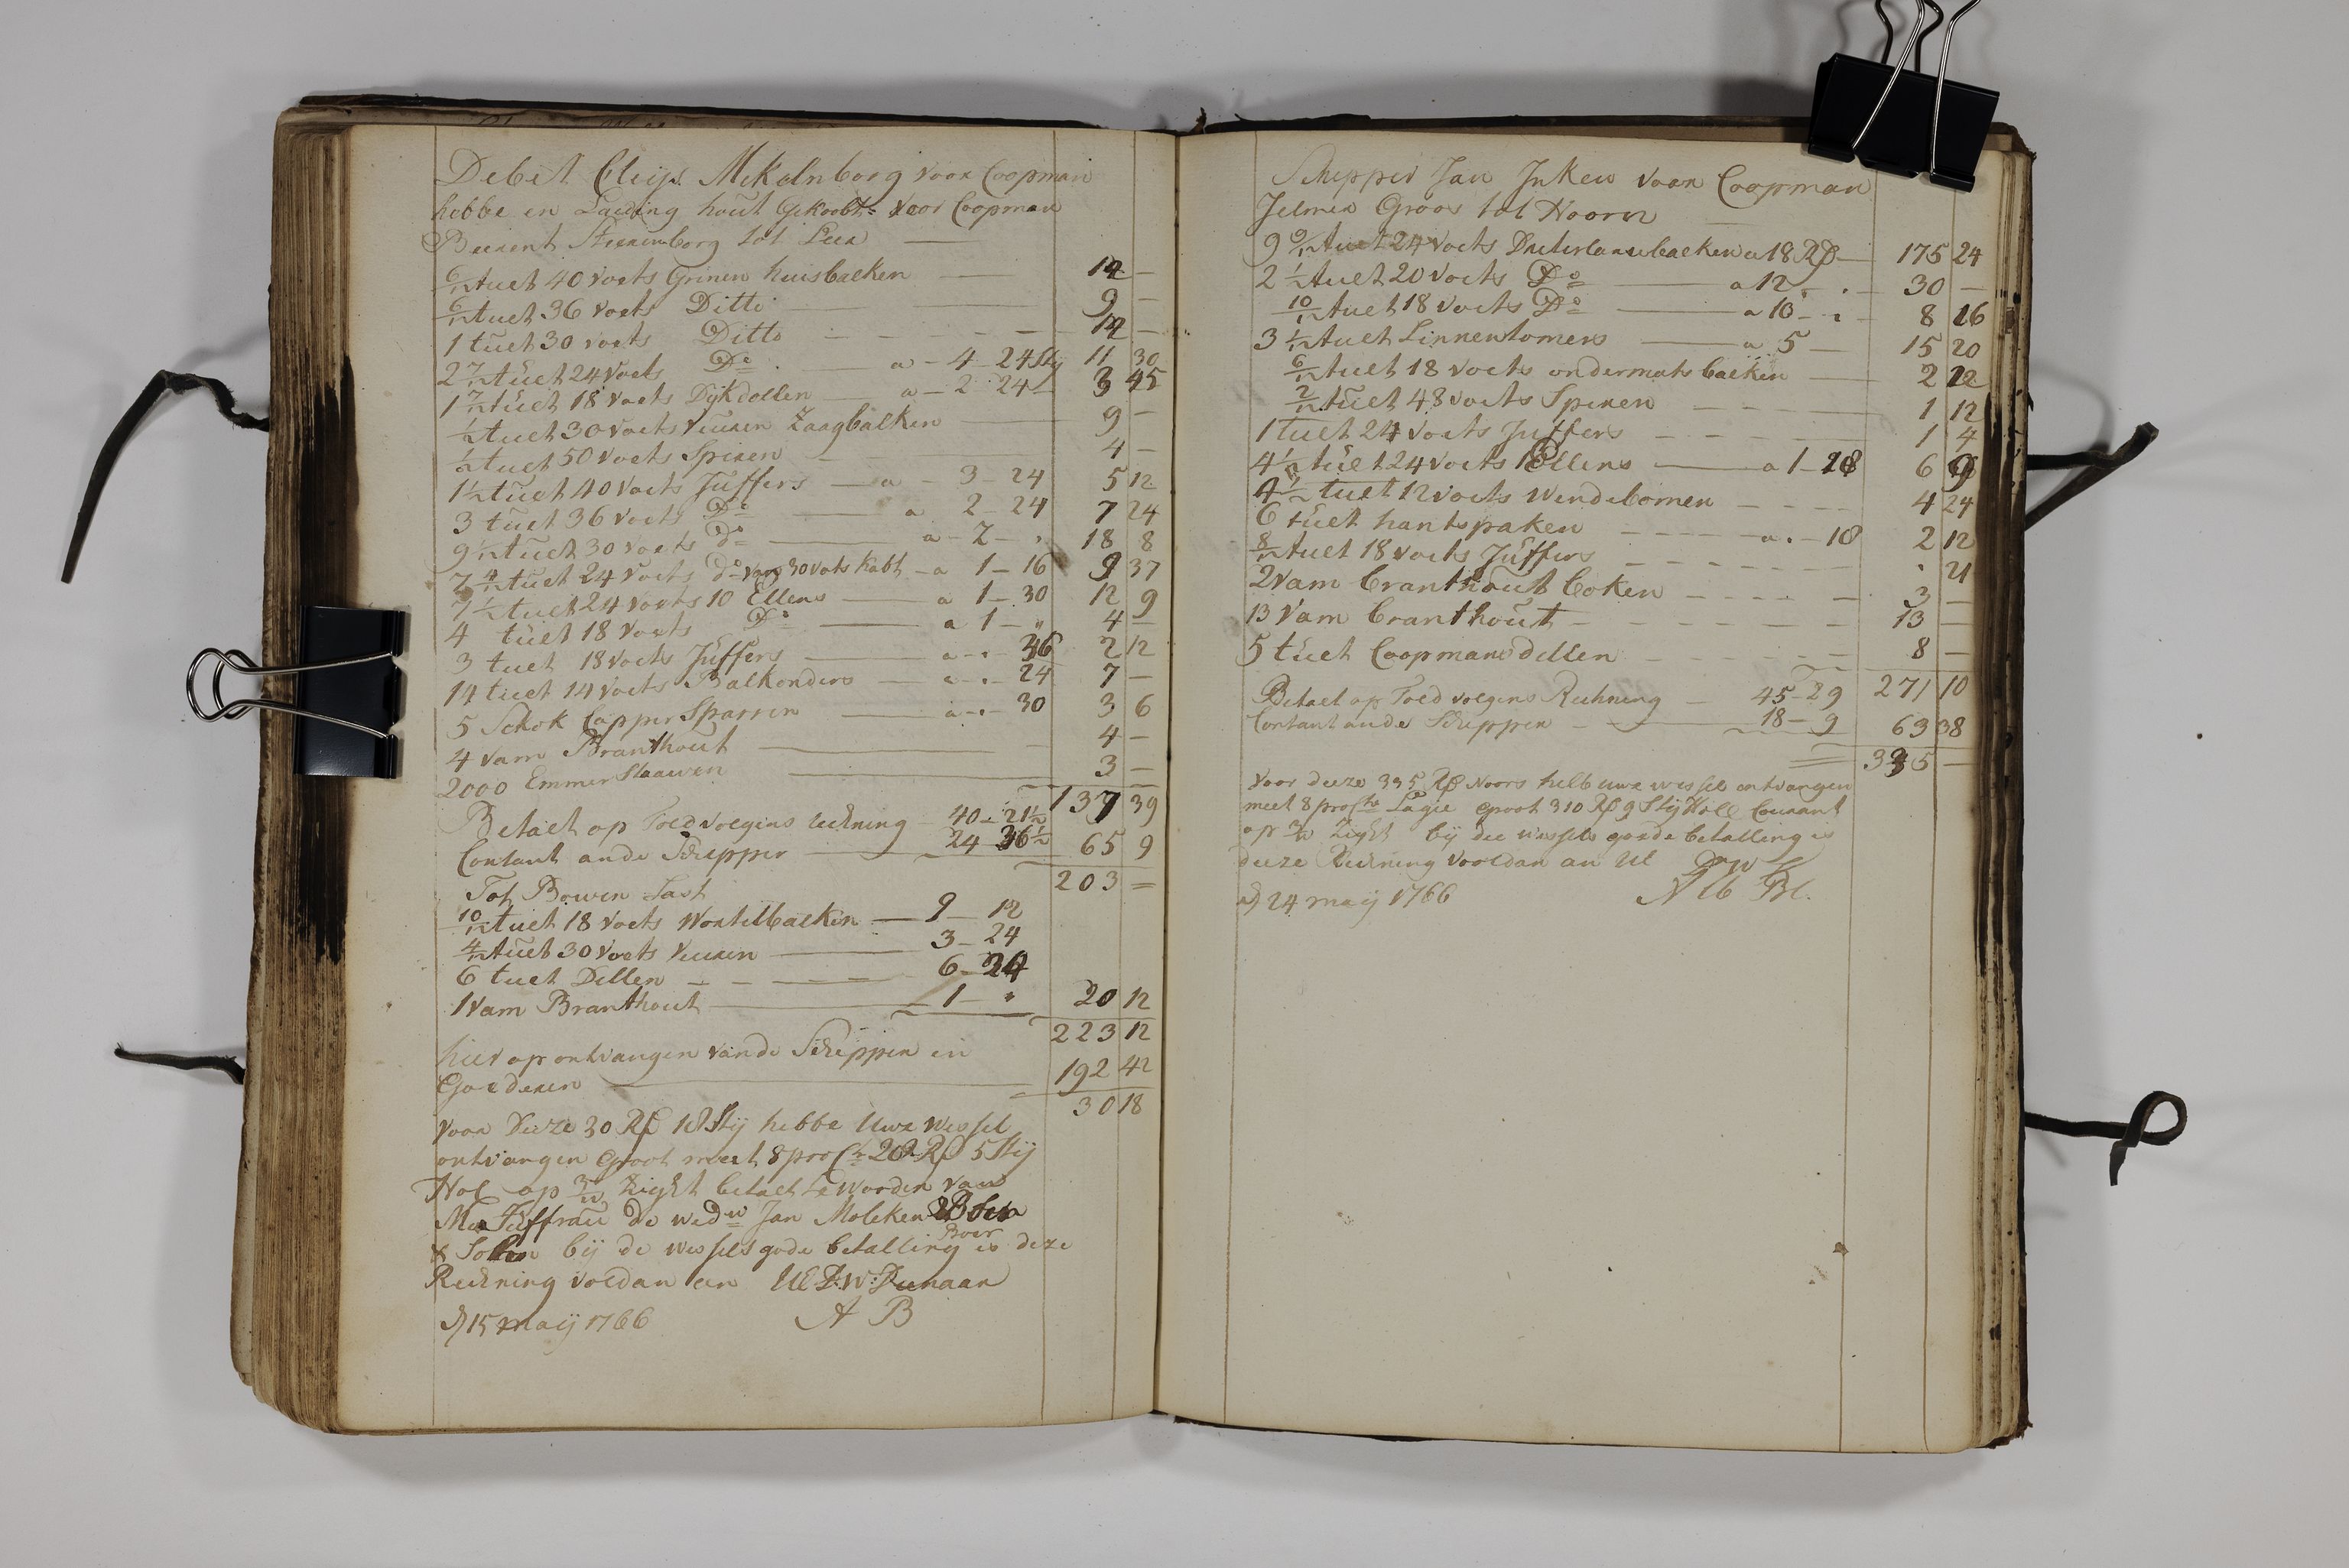 Debet Cleijs Mekelnborg voor Coopman
hebbe en Laeding hout Gekooht voor Coopman
Beerent Steerenborg tot Leer —
6/12 tuet 40 voets Grinen huisbaelken — 12 —
6/12 tuet 36 voets Ditto — 9 —
1 tuet 30 voets Ditto — 12 —
2 7/12 tuet 24 voets Do a — 4 — 24 Stij 11 30
1 7/12 tuet 18 voets Dijkdollen — a — 2 24 — 3 45
1/2 tuet 30 voets vuuren Zaagbalken 9 —
1/2 tuet 50 voets Spieren 4 —
1 1/2 tuet 40 voets Juffers — a — 3 — 24 5 12
3 tuet 36 voets Do — a 2 — 24 7 24
9 1/12 tuet 30 voets do — a — 2 — 18 8
7 4/12 tuet 24 voets do van 30 vots Kabt — a 1 — 16 9 37
7 1/2 tuet 24 voets 10 Ellens — a 1 — 30 12 9
4 tuet 18 voets Do — a 1 — „ 4 —
3 tuet 18 voets Juffers — a — . 36 2 12
14 tuet 14 voets Balkonders — a . — 24 7 —
5 Schok Capper Sparren — a — . — 30 3 6
4 vam Branthout — 4 —
2000 Emmer Staawen — 3 —
137 39
Betaelt op Toed volgins reckning — 40 — 21 1/2
Contant ande Schepper — 24 36 1/2 65 9
203 =
Tot Bowen Last
10/12 tuet 18 voets Wortelbaelken — 9 — 12
4/12 tuet 30 voets vuuren — 3 — 24
6 tuet Dellen — 6 — 24
1 Vam Branthout — 1 — „ 20 12
223 12
hier op ontvangen vande Scheppen in
Goederen — 192 42
30 18
voor Deeze 30 Rß 18 Stij hebbe Uwe wessel
ontvangen groot meet 8 pro Ct 28 Rß 5 Stij
Hol op 3/w Zight betaelt te worden van
Me Juffrau de wedw Jan Moleken Boer
Boer
& Sohn bij de wessels gode betalling is deze
Reckning voldan an UE D:W: Dienaar
dj 15 maij 1766 A B
Schepper Jan Inken voor Coopman
Jelmer Groos tot Hoorn —
9 9/12 tuet 24 voets Duiterlansebaelken a 18 Rß — 175 24
2 1/2 tuet 20 voets Do — a 12 — . — 30 —
10/12 tuet 18 voets Do — a 10 — . 8 16
3 1/12 tuet Linnentomers — a 5 — 15 20
6/12 tuet 18 voets ondermats baelken — 2 12
2/12 tuet 48 voets Spieren — 1 12
1 tuet 24 voets Juffers — 1 4
4 1/2 tuet 24 voets 10 Ellens — a 1 — 18 6 9
4 1/2 tuet 12 voets Wendebomen — 4 24
6 tuet hantspaken — a . — 18 2 12
8/12 tuet 18 voets Juffers — . 21
2 vam branthout boken — 3 —
13 Vam branthout — 13 —
5 tuet Coopmans dellen — 8 —
Betaet op Toed volgens Reckning — 45 — 29 271 10
Contant ande Schepper — 18 — 9 63 38
335 —
voor deeze 335 Rß Noors heb uwe wessels ontvangen
meet 8 pro Cto Lagie groot 310 Rß 9 Stij Holl Courant
op 3/w Zight bij de wessels goede betalling is
deeze Reckning voldan an UE DW
dj 24 maij 1766 Alb Br.